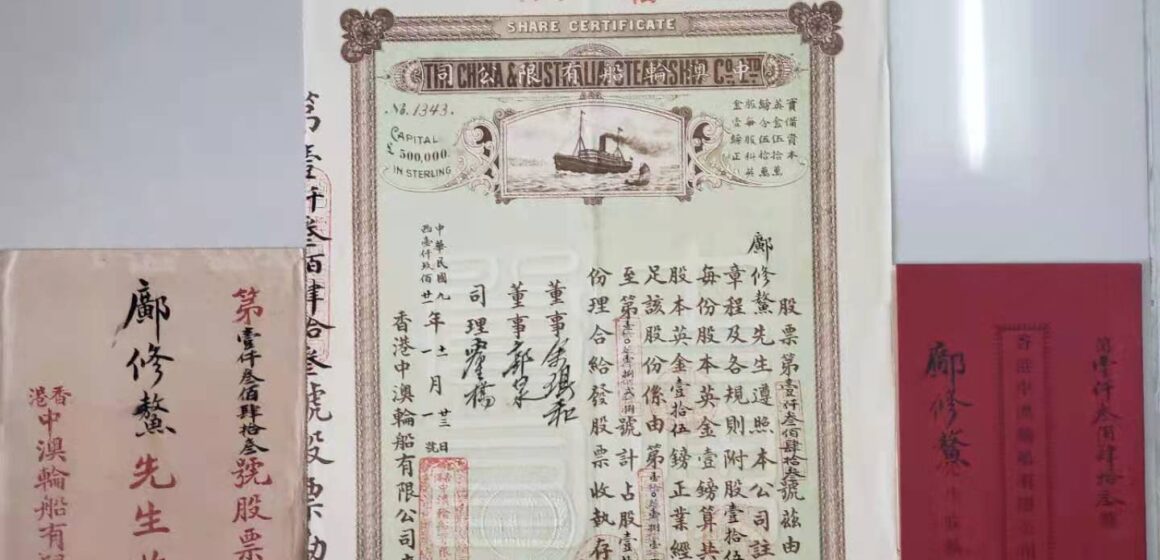 SHARE CERTIFICATE
THE CHINA & AUSTRALIAN STEAMSHIP CO. LTD
中澳輪船有限公司
No. 1343.
CAPITAL
£ 500,000.
IN STERLING
實備資本
英金伍拾萬
鎊分伍拾萬
股每股科英
金壹鎊正
股票第壹仟叁佰肆拾叁號茲由
鄺修鰲先生遵照本公司註
章程及各規則附股壹拾伍
每份股本英金壹鎊算共
股本英金壹拾伍鎊正業經
足該股份係由第
至第 號計占股壹
份理合給發股票收執存
董事
董事
司理
中華民國九年十一月十三日
西壹仟玖佰廿年 月 號
香港中澳輪船有限公司
第壹仟叁佰肆拾叁號股票
第壹仟叁佰肆拾叁號股票
鄺修鰲先生
香港中澳輪船有限
第壹仟叁佰肆拾叁號
香港中澳輪船有限公司
鄺修鰲